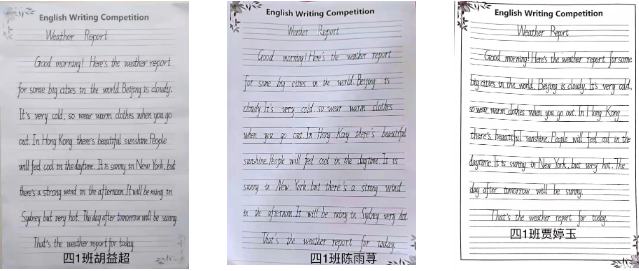 English Writing Competition
Weather Report
Good morning! Here's the weather report
for some big cities in the world. Beijing is cloudy.
It's very cold, so wear warm clothes when you go
out. In Hong Kong there's beautiful sunshine. People
will feel cool in the daytime. It is sunny in New York, but
there's a strong wind in the afternoon. It will be rainy in
Sydney but very hot. The day after tomorrow will be sunny.
That's the weather report for today.
四1班胡益超
English Writing Competition
Weather Report
Good morning! Here's the weather report
for some big cities in the world. Beijing is
cloudy. It's very cold so wear warm clothes
when you go out. In Hong Kong there's beautiful
sunshine. People will feel cool in the daytime. It is
sunny in New York but there's a strong wind
in the afternoon. It will be rainy in Sydney very hot.
That's the weather report for today.
四1班陈雨荨
English Writing Competition
Weather Report
Good morning! Here's the weather report for some
big cities in the world. Beijing is cloudy. It's very cold,
so wear warm clothes when you go out. In Hong Kong
there's beautiful sunshine. People will feel cool in the
daytime. It is sunny in New York, but very hot. The
day after tomorrow will be sunny.
That's the weather report for today.
四1班贾婷玉